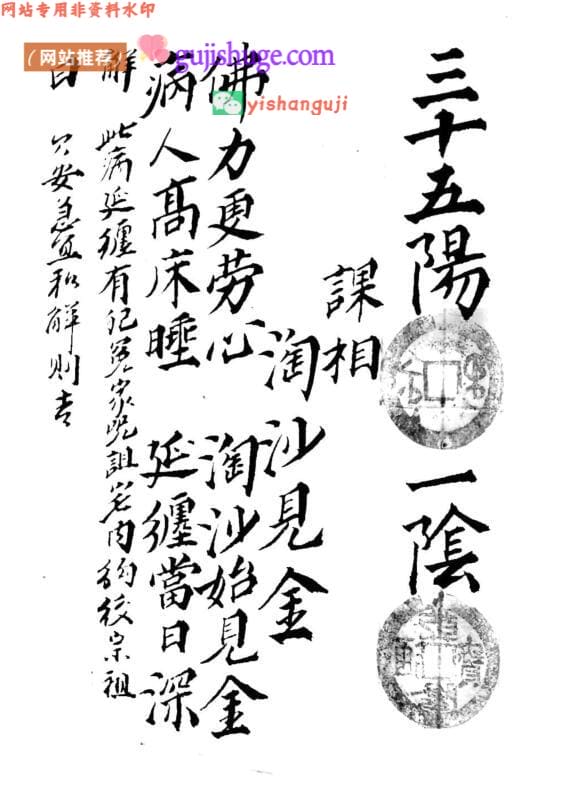 网站专用非资料水印
(网站推荐)
gujishuge.com
yishanguji
三十五陽 一陰
課相
淘沙見金
佛力更劳心 淘沙始見金
病人高床睡 延纏當日深
解曰
此病延纏有犯冤家咒詛
肉
宗祖
安急宜和解則吉